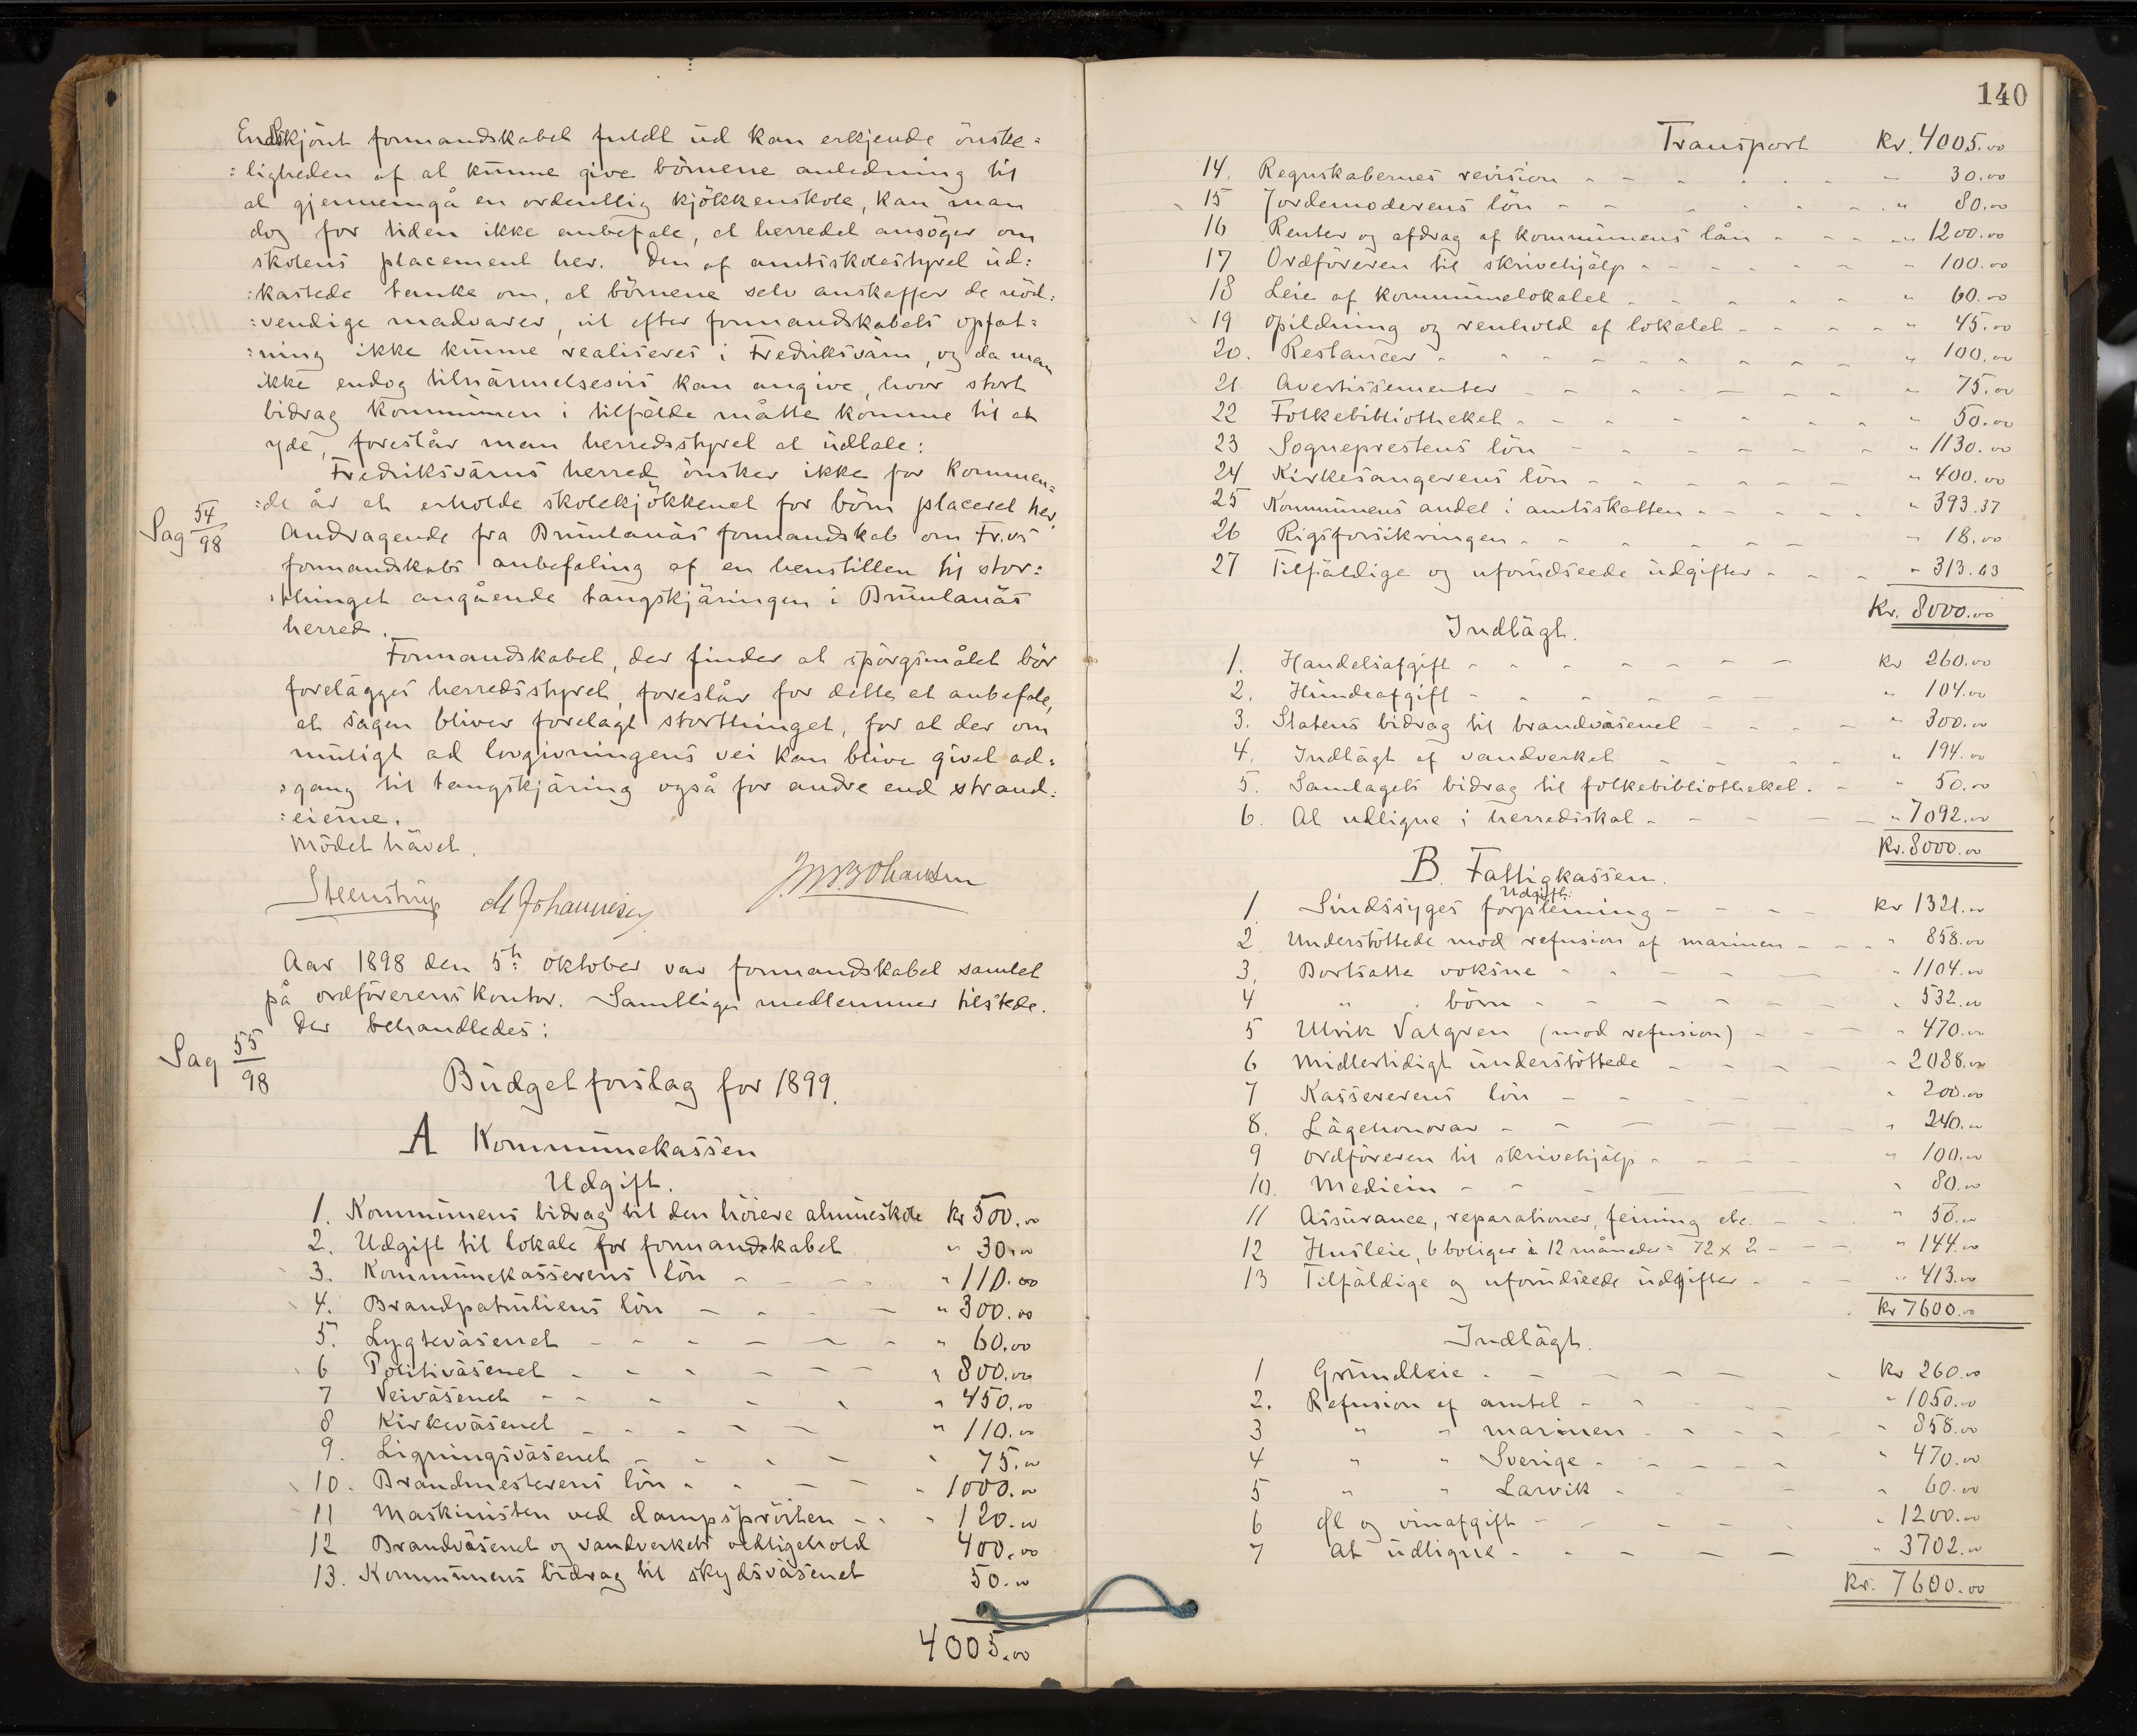 Endskjönt formandskabet fuldt ud kan erkjende önske=
:ligheden af at kunne give börnene anledning til
at gjennemgå en ordentlig kjökkenskole, kan man
dog for tiden ikke anbefale, at herredet ansöger om
skolens placement her. Den af amtsskolestyret ud:
:kastede tanke om, at börnene selv anskaffer de nöd:
:vendige madvarer, vil efter formandskabets opfat:
:ning ikke kunne realiseres i Fredriksvärn, og da man
ikke endog tilnärmelsesvis kan angive, hvor stort
bidrag kommunen i tilfälde måtte komme til at
yde, foreslår man herredsstyret at udtale:
Fredriksvärns herred önsker ikke for kommen=
:de år at erholde skolekjökkenet for börn placeret her.
Sag 54/98
Andragende fra Brunlanäs formandskab om Fr.vs
formandskabs anbefaling af en henstillen til stor:
:thinget angående tangskjäringen i Brunlanäs
herred.
Formandskabet, der finder at spörgsmålet bör
forelägges herredsstyret, foreslår for dette at anbefale,
at sagen bliver forelagt storthinget, for at der om
muligt ad lovgivningens vei kan blive givet ad:
:gang til tangskjäring også for andre end strand:
:eierne.
Mödet hävet.
Steenstrup M Johannesen Johansen
Aar 1898 den 5te oktober var formandskabet samlet
på ordförerens kontor. Samtlige medlemmer tilstede.
Der behandledes:
Sag 55/98
Budgetforslag for 1899.
A Kommunekassen
Udgift.
1. Kommunens bidrag til den höiere almueskole kr 500.00
2. Udgift til lokale for formandskabet " 30.00
3. Kommunekasserens lön " 110.00
4. Brandpatruliens lön " 300.00
5. Lygteväsenet " 60.00
6 Politiväsenet " 800.00
7 Veiväsenet " 450.00
8 Kirkeväsenet " 110.00
9. Ligningsväsenet " 75.00
10. Brandmesterens lön " 1000.00
11 Maskinisten ved dampspröiten " 120.00
12 Brandväsenet og vandverkets vedligehold 400.00
13. Kommunens bidrag til skydsväsenet 50.00
4005.00
140
Transport Kr. 4005.00
14. Regnskabernes revision 30.00
15 Jordemoderens lön " 80.00
16 Renter og afdrag af kommunens lån " 1200.00
17 Ordföreren til skrivehjälp " 100.00
18 Leie af kommunelokalet " 60.00
19 Opildning og renhold af lokalet " 45.00
20. Restancer " 100.00
21 Avertissementer " 75.00
22 Folkebibliotheket " 50.00
23 Sogneprestens lön " 1130.00
24 Kirkesangerens lön " 400.00
25 Kommunens andel i amtsskatten " 393.37
26 Rigsforsikringen " 18.00
27 Tilfäldige og uforudseede udgifter " 313.63
Kr. 8000.00
Indtägt.
1. Handelsafgift kr 260.00
2. Hundeafgift " 104.00
3. Statens bidrag til brandväsenet " 300.00
4. Indtägt af vandverket " 194.00
5. Samlagets bidrag til folkebibliotheket. " 50.00
6. At udligne i herredsskat " 7092.00
Kr. 8000.00
B. Fattigkassen.
Udgift:
1. Sindssyges forpleining kr 1321.00
2 Understöttede mod refusion af marinen " 858.00
3. Bortsatte voksne " 1104.00
4 " börn " 532.00
5 Ulrik Valgren (mod refusion) " 470.00
6 Midlertidigt understöttede " 2088.00
7 Kassererens lön " 200.00
8. Lägehonorar " 240.00
9 Ordföreren til skrivehjälp " 100.00
10. Medicin " 80.00
11 Assurance, reparationer, feining etc. " 50.00
12 Husleie, 6 boliger à 12 måneder = 72 x 2 " 144.00
13 Tilfäldige og uforudseede udgifter " 413.00
kr 7600.00
Indtägt.
1 Grundleie kr 260.00
2. Refusion af amtet " 1050.00
3 " " marinen " 858.00
4 " " Sverige " 470.00
5 " " Larvik " 60.00
6 Øl og vinafgift " 1200.00
7 At udligne " 3702.00
Kr. 7600.00